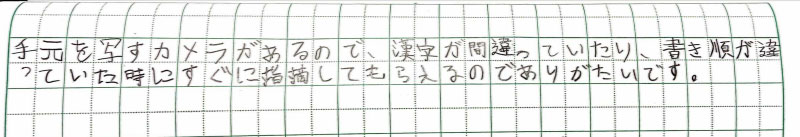 手元を写すカメラがあるので、漢字が間違っていたり、書き順が違
っていた時にすぐに指摘してもらえるのでありがたいです。